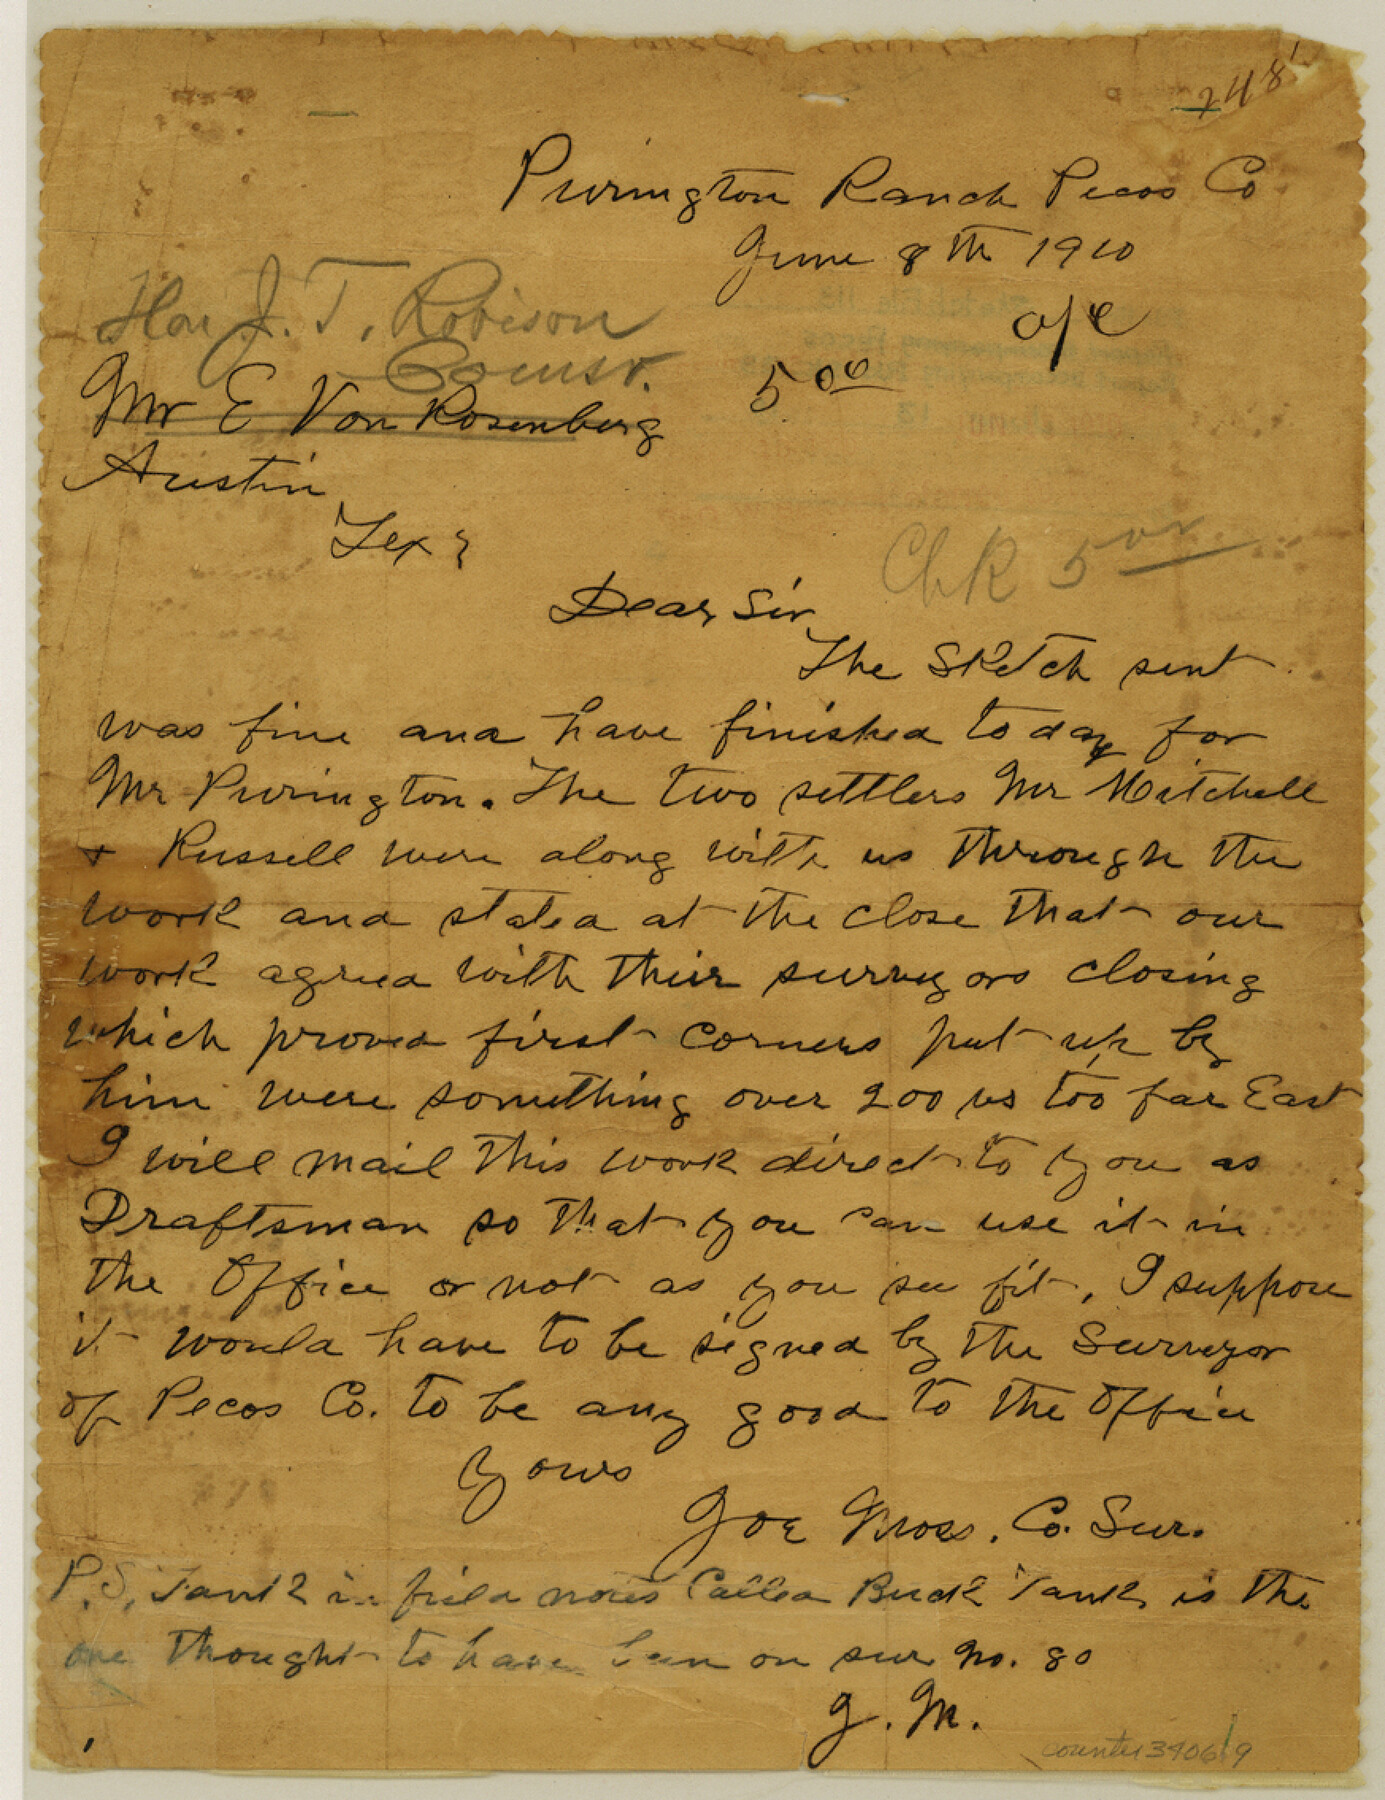 248
Purington Ranch Pecos Co
June 8th 1910
Hon J. T. Robison
Comsr.
5 00
Mr E Von Rosenberg
Austin
Tex
Chk 5
Dear Sir
The Sketch sent
was fine and have finished today for
Mr Purington. The two settlers Mr Mitchell
+ Russell were along with us through the
work and stated at the close that our
work agreed with their surveyors closing
which proved first corners put up by
him were something over 200 vs too far East
I will mail this work direct to you as
Draftsman so that you can use it in
the Office or not as you see fit, I suppose
it would have to be signed by the Surveyor
of Pecos Co. to be any good to the Office
Yours
Joe Moss. Co. Sur.
P.S. Tank in field notes Called Buck Tank is the
one thought to have been on sur No. 80
J. M.
counter 34069